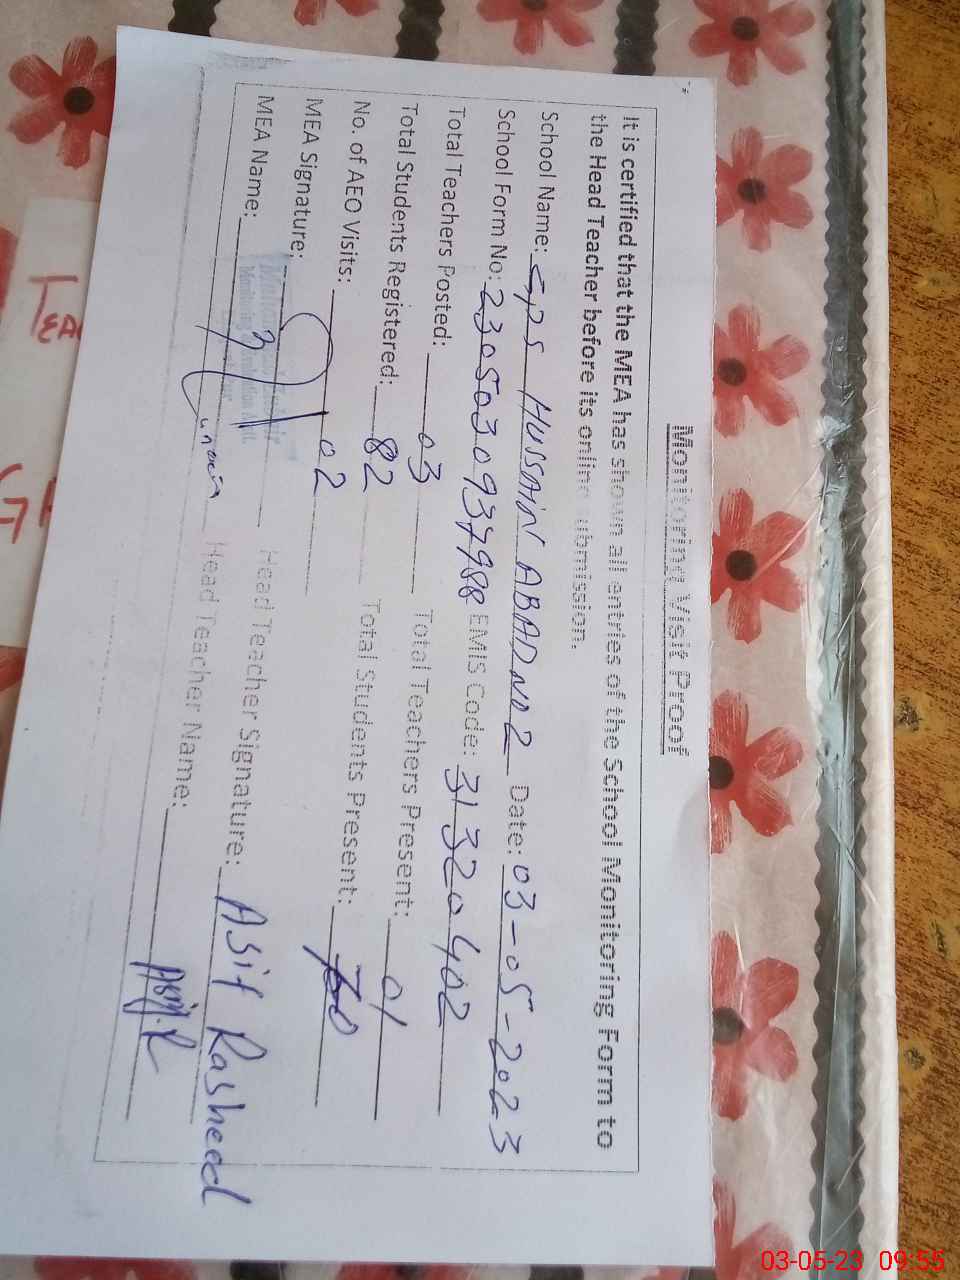 Monitoring Visit Proof
It is certified that the MEA has shown all entries of the School Monitoring Form to
the Head Teacher before its online submission.
School Name: GPS HUSSAIN ABAD NO 2 Date: 03-05-2023
School Form No: 2305030937988 EMIS Code: 31320402
Total Teachers Posted: 03 Total Teachers Present: 01
Total Students Registered: 82 Total Students Present:
No. of AEO Visits: 02
MEA Signature: Head Teacher Signature: Asif Rasheed
MEA Name: Head Teacher Name: Asif.R
TEA
03-05-23 09:55